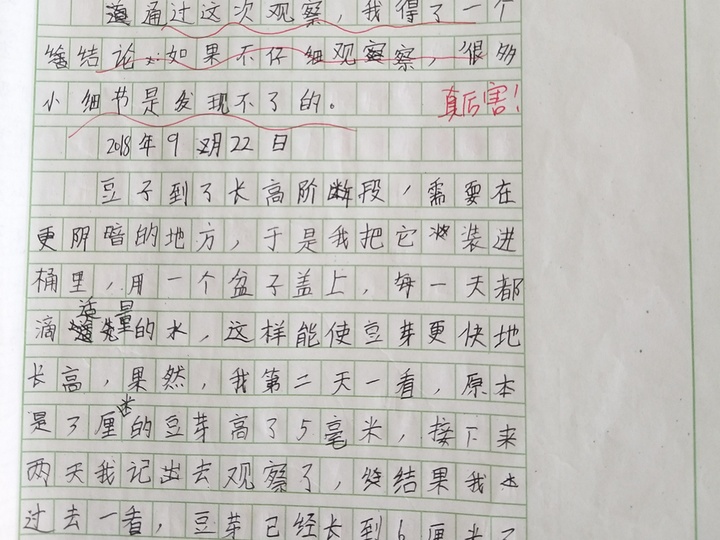 通过这次观察，我得了一个
结论：如果不仔细观察，很多
小细节是发现不了的。
真厉害！
2018年9月22日
豆子到了长高阶段，需要在
更阴暗的地方，于是我把它装进
桶里，用一个盆子盖上，每一天都
滴适量的水，这样能使豆芽更快地
长高，果然，我第二天一看，原本
是3厘米的豆芽高了5毫米，接下来
两天我记出去观察了，结果我
过去一看，豆芽已经长到6厘米了